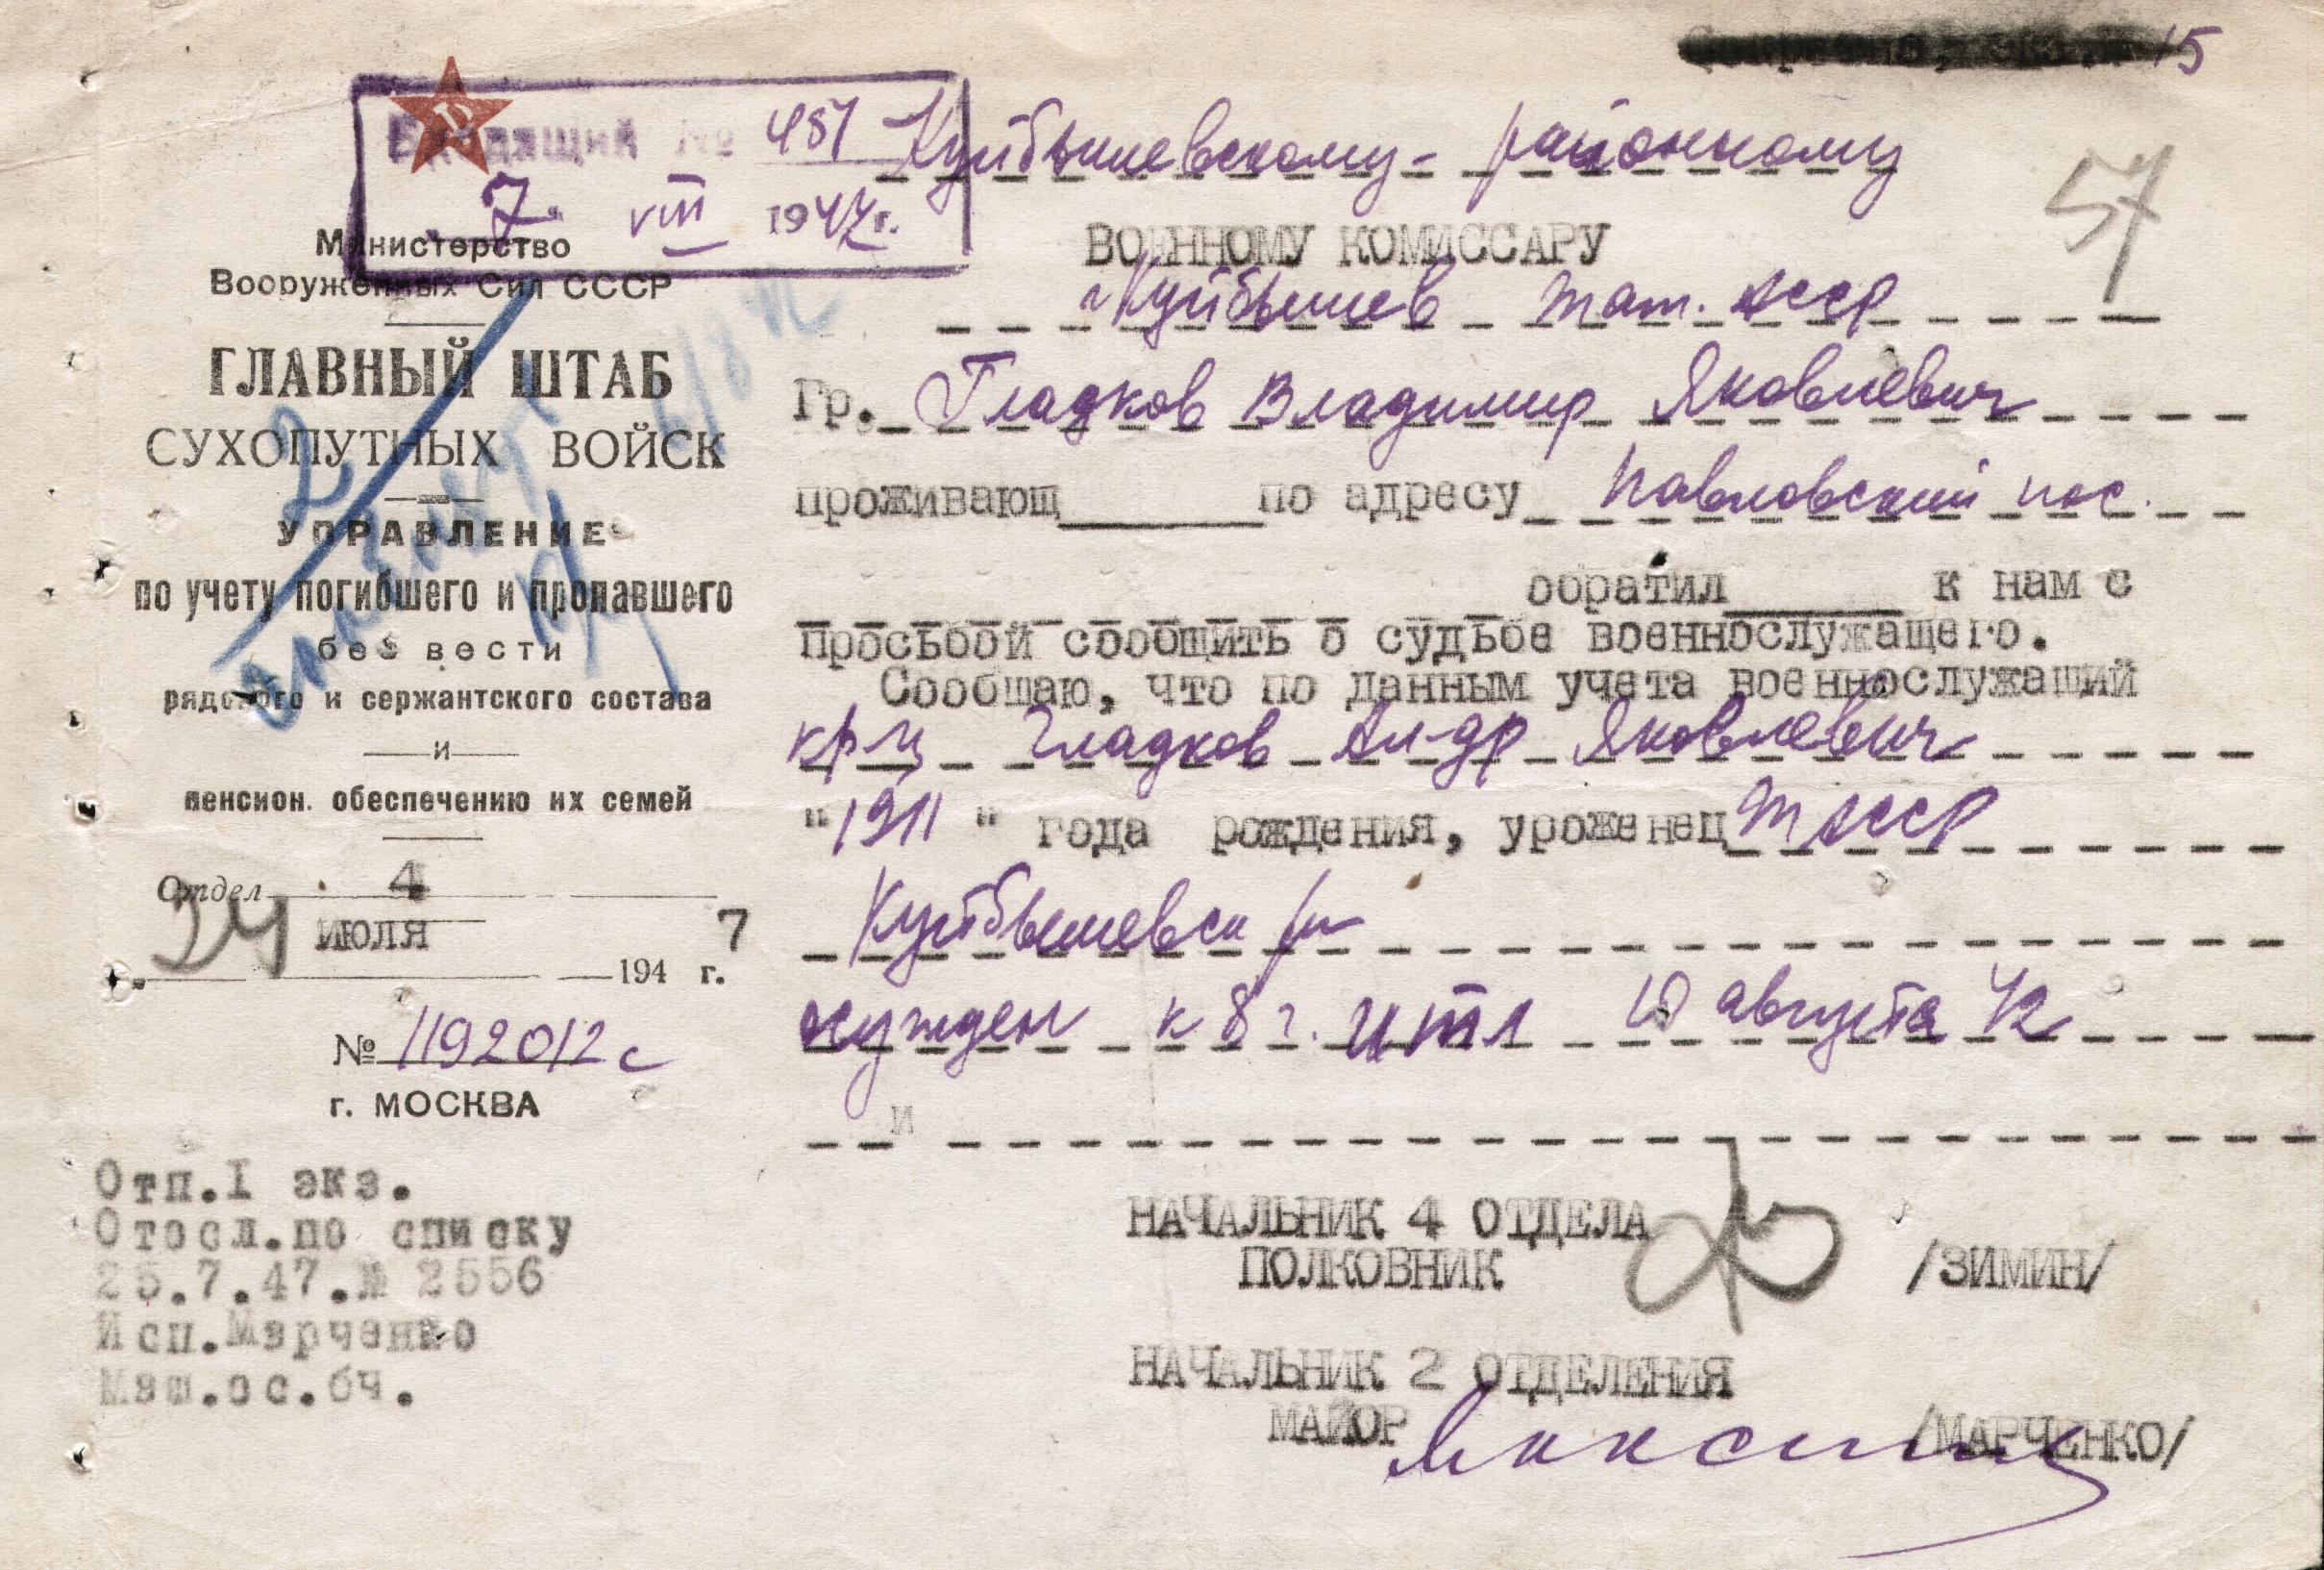 15
Входящий № 487
7. VIII 1947 г.
Министерство
Вооруженных Сил СССР
ГЛАВНЫЙ ШТАБ
СУХОПУТНЫХ ВОЙСК
УПРАВЛЕНИЕ
по учету погибшего и пропавшего
без вести
рядового и сержантского состава
и
пенсион. обеспечению их семей
Отдел 4
24 ИЮЛЯ 1947 г.
№ 1192012с
г. МОСКВА
Отп.I экз.
Отосл.по списку
25.7.47.№ 2556
Исп.Марченко
Маш.эс.бч.
Куйбышевскому - районному
57
ВОЕННОМУ КОМИССАРУ
г Куйбышев тат. АССР
Гр. Гладков Владимир Яковлевич
проживающ по адресу Павловский пос.
обратил к нам с
просьбой сообщить о судьбе военнослужащего.
Сообщаю, что по данным учета военнослужащий
кр-ц Гладков Ал-др Яковлевич
"1911" года рождения, уроженец ТАССР
Куйбышевск р-н
осужден к 8 г. ИТЛ 10 августа 42
и
НАЧАЛЬНИК 4 ОТДЕЛА
ПОЛКОВНИК /ЗИМИН/
НАЧАЛЬНИК 2 ОТДЕЛЕНИЯ
МАЙОР /МАРЧЕНКО/